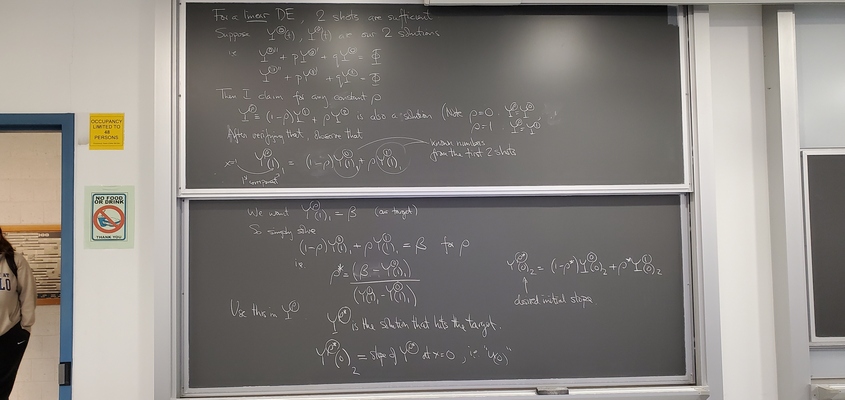 For a linear DE, 2 shots are sufficient
Suppose Y⁽⁰⁾(t), Y⁽¹⁾(t) are our 2 solutions
is Y⁽⁰⁾'' + pY⁽⁰⁾' + qY⁽⁰⁾ = Φ
Y⁽¹⁾'' + pY⁽¹⁾' + qY⁽¹⁾ = Φ
Then I claim for any constant ρ
Y⁽ᵖ⁾ = (1-ρ)Y⁽⁰⁾ + ρY⁽¹⁾ is also a solution (Note ρ=0: Y⁽ᵖ⁾=Y⁽⁰⁾
ρ=1: Y⁽ᵖ⁾=Y⁽¹⁾
After verifying that, observe that
x=1 Y⁽ᵖ⁾(1)₁ = (1-ρ)Y⁽⁰⁾(1)₁ + ρY⁽¹⁾(1)₁
known numbers
from the first 2 shots
1ˢᵗ component
We want Y⁽ᵖ⁾(1)₁ = β (our target)
So simply solve
(1-ρ)Y⁽⁰⁾(1)₁ + ρY⁽¹⁾(1)₁ = β for ρ
ie. ρ* = (β - Y⁽⁰⁾(1)₁) / (Y⁽¹⁾(1)₁ - Y⁽⁰⁾(1)₁)
Use this in Y⁽ᵖ⁾
Y⁽ᵖ*⁾ is the solution that hits the target.
Y⁽ᵖ*⁾(0)₂ = slope of Y⁽ᵖ*⁾ at x=0, is "y'(0)"
Y⁽ᵖ*⁾(0)₂ = (1-ρ*)Y⁽⁰⁾(0)₂ + ρ*Y⁽¹⁾(0)₂
desired initial slope
OCCUPANCY
LIMITED TO
48
PERSONS
NO FOOD
OR DRINK
THANK YOU